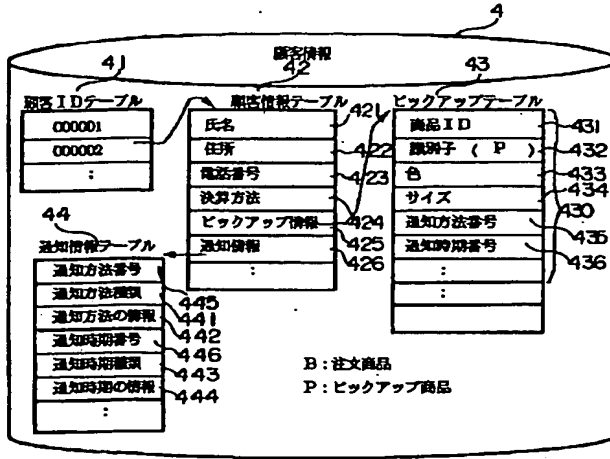 4
顧客情報
41
42
43
顧客IDテーブル
000001
000002
:
顧客情報テーブル
氏名
住所
電話番号
決算方法
ピックアップ情報
通知情報
:
421
422
423
424
425
426
ピックアップテーブル
商品ID
識別子 ( P )
色
サイズ
通知方法番号
通知時期番号
:
:
431
432
433
434
430
435
436
44
通知情報テーブル
通知方法番号
通知方法種類
通知方法の情報
通知時期番号
通知時期種類
通知時期の情報
:
445
441
442
446
443
444
B:注文商品
P:ピックアップ商品